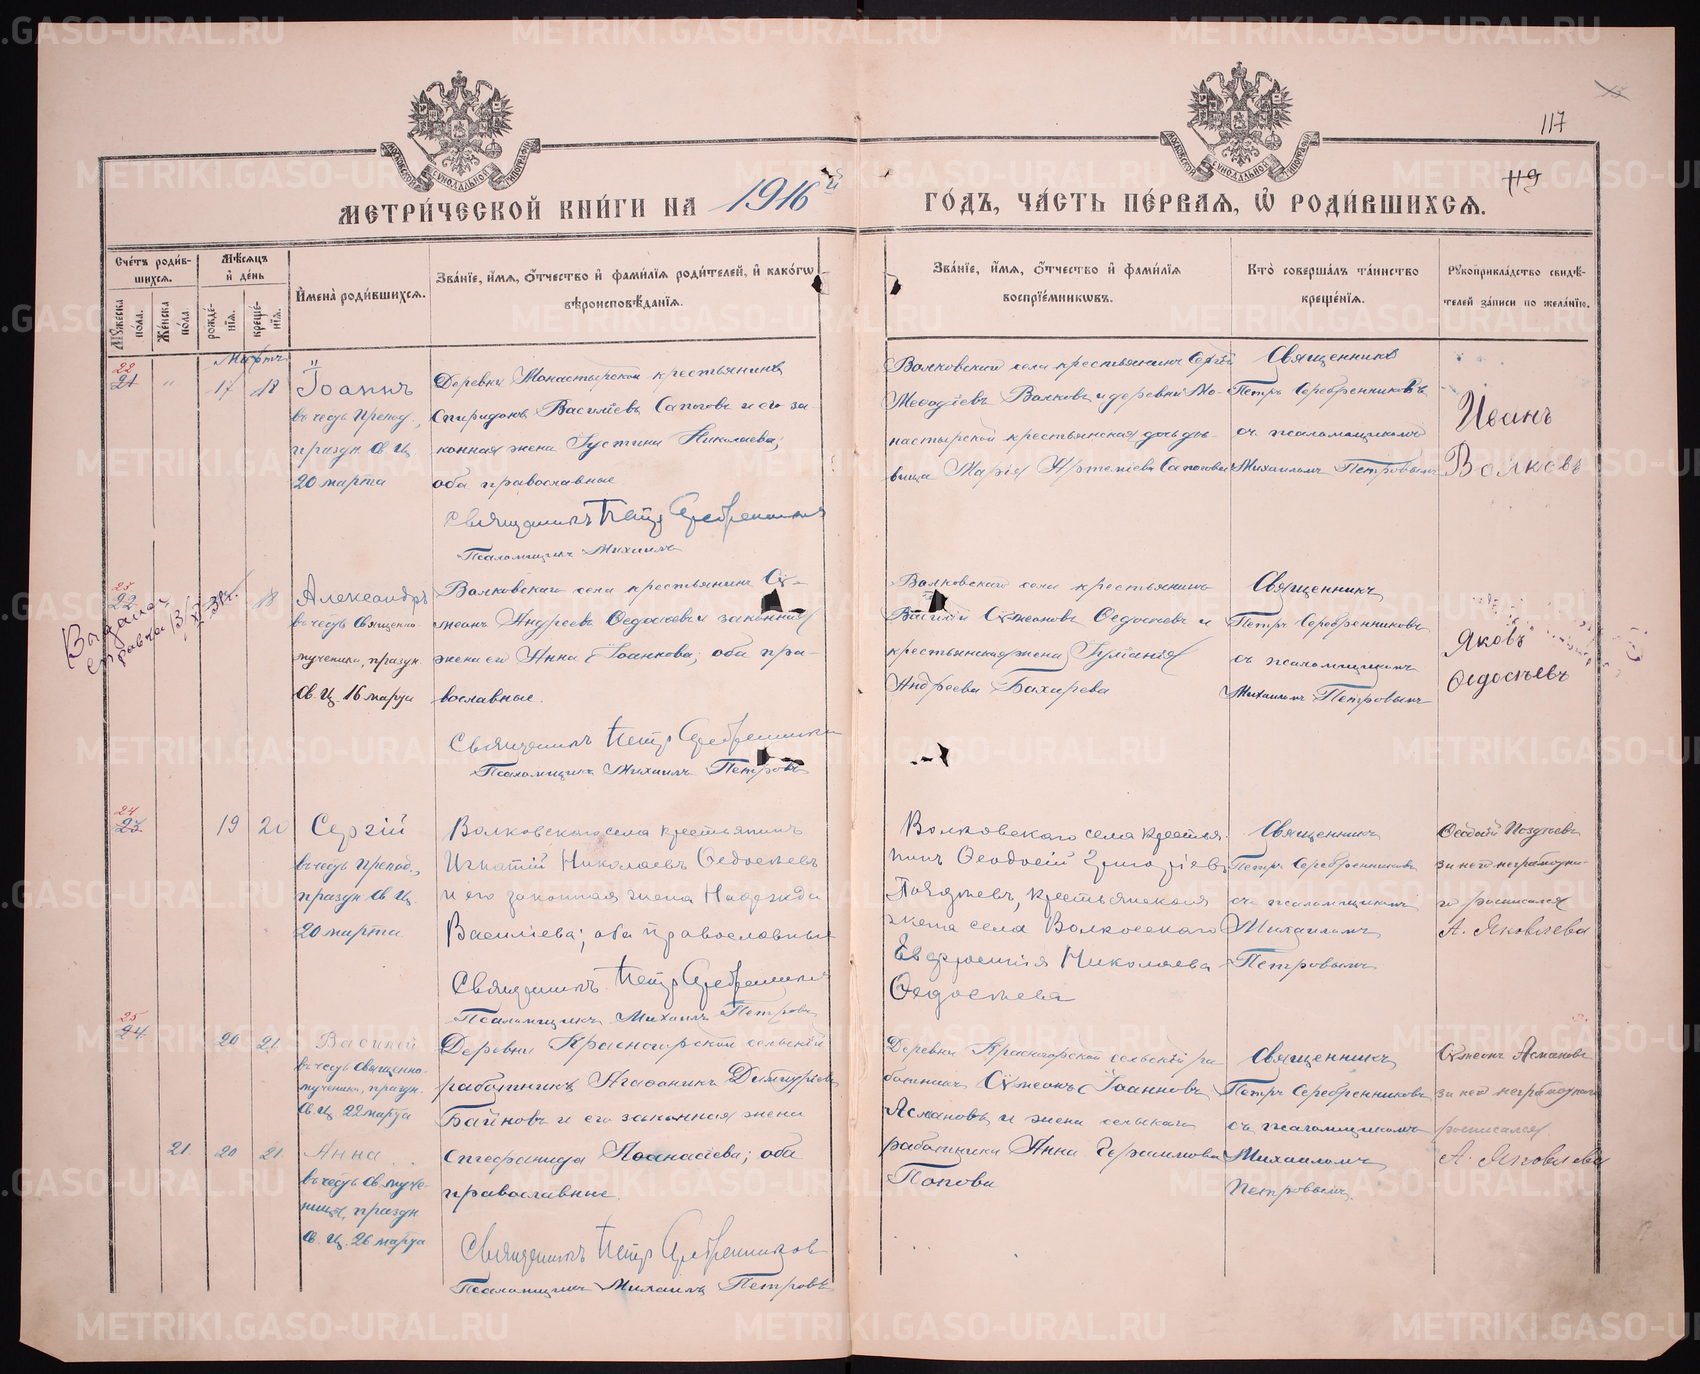 117
119
МЕТРИ́ЧЕСКОЙ КНИ́ГИ НА 1916 й ГО́ДЪ, ЧА́СТЬ ПЕ́РВАЯ, Ѡ҆ РОДИ́ВШИХСЯ.
Сче́тъ роди́в-
шихся.
Му́жеска
пола.
Же́нска
по́ла.
Мѣ́сяцъ
и҆ де́нь
рожде́-
нїя.
креще́-
нїя.
И҆мена̀ роди́вшихся.
Зва́нїе, и҆́мя, ѻ҆́тчество и҆ фами́лїя роди́телей, и҆ како́гѡ
вѣроисповѣ́данїя.
Зва́нїе, и҆́мя, ѻ҆́тчество и҆ фами́лїя
воспрїе́мникѡвъ.
Кто̀ соверша́лъ та́инство
креще́нїя.
Рꙋкоприкла́дство свидѣ́-
телей за́писи по жела́нїю.
Мартъ
22
21
17
18
Іоаннъ
въ честь Препод.,
праздн. Св. Ц.
20 марта
Деревни Монастырской крестьянинъ
Спиридонъ Василіевъ Сапоговъ и его за-
конная жена Іустина Николаева;
оба православные
Священникъ Петръ Серебренников
Псаломщикъ Михаилъ
Волковскаго села крестьянинъ Сергій
Меѳодіевъ Волковъ и деревни Мо-
настырской крестьянская дочь дѣ-
вица Марія Артеміева Сапогова
Священникъ
Петръ Серебренниковъ
съ псаломщикомъ
Михаиломъ Петровымъ
Иванъ
Волковъ
23
22
18
Выдана
справка 13/XI-38г.
Александръ
въ честь Священно-
мученика, праздн.
Св. Ц. 16 марта
Волковскаго села крестьянинъ Сѵ-
меонъ Андреевъ Ѳедосѣевъ и законная
жена его Анна Іоаннова; оба пра-
вославные.
Священникъ Петръ Серебренников
Псаломщикъ Михаилъ Петровъ
Волковскаго села крестьянинъ
Василій Сѵмеоновъ Ѳедосѣевъ и
крестьянская жена Іуліанія
Андреева Бахирева
Священникъ
Петръ Серебренниковъ
съ псаломщикомъ
Михаиломъ Петровымъ
Яковъ
Ѳедосѣевъ
24
23
19
20
Сергій
въ честь Препод.,
праздн. Св. Ц.
20 марта
Волковскаго села крестьянинъ
Игнатій Николаевъ Ѳедосѣевъ
и его законная жена Надежда
Василіева; оба православные
Священникъ Петръ Серебренников
Псаломщикъ Михаилъ Петровъ
Волковскаго села крестья-
нинъ Ѳеодосій Григоріевъ
Поздѣевъ, крестьянская
жена села Волковскаго
Евфросинія Николаева
Ѳедосѣева
Священникъ
Петръ Серебренниковъ
съ псаломщикомъ
Михаиломъ
Петровымъ
Ѳеодосій Поздѣевъ
за него неграмотна-
го росписался
А. Яковлева
25
24
20
21
Василій
въ честь Священно-
мученика, праздн.
Св. Ц. 22 марта
Деревни Красногорской сельскій
работникъ Агаѳоникъ Димитріевъ
Байновъ и его законная жена
Стефанида Аѳанасіева; оба
православные.
Священникъ Петръ Серебренников
Псаломщикъ Михаилъ Петровъ
Деревни Красногорской сельскій ра-
ботникъ Сѵмеонъ Іоанновъ
Асмановъ и жена сельскаго
работника Анна Герасимова
Попова
Священникъ
Петръ Серебренниковъ
съ псаломщикомъ
Михаиломъ
Петровымъ.
Сѵмеонъ Асмановъ
за него неграмотнаго
росписался
А. Яковлева
21
20
21
Анна
въ честь Св. муче-
ницы, праздн.
Св. Ц. 26 марта
METRIKI.GASO-URAL.RU